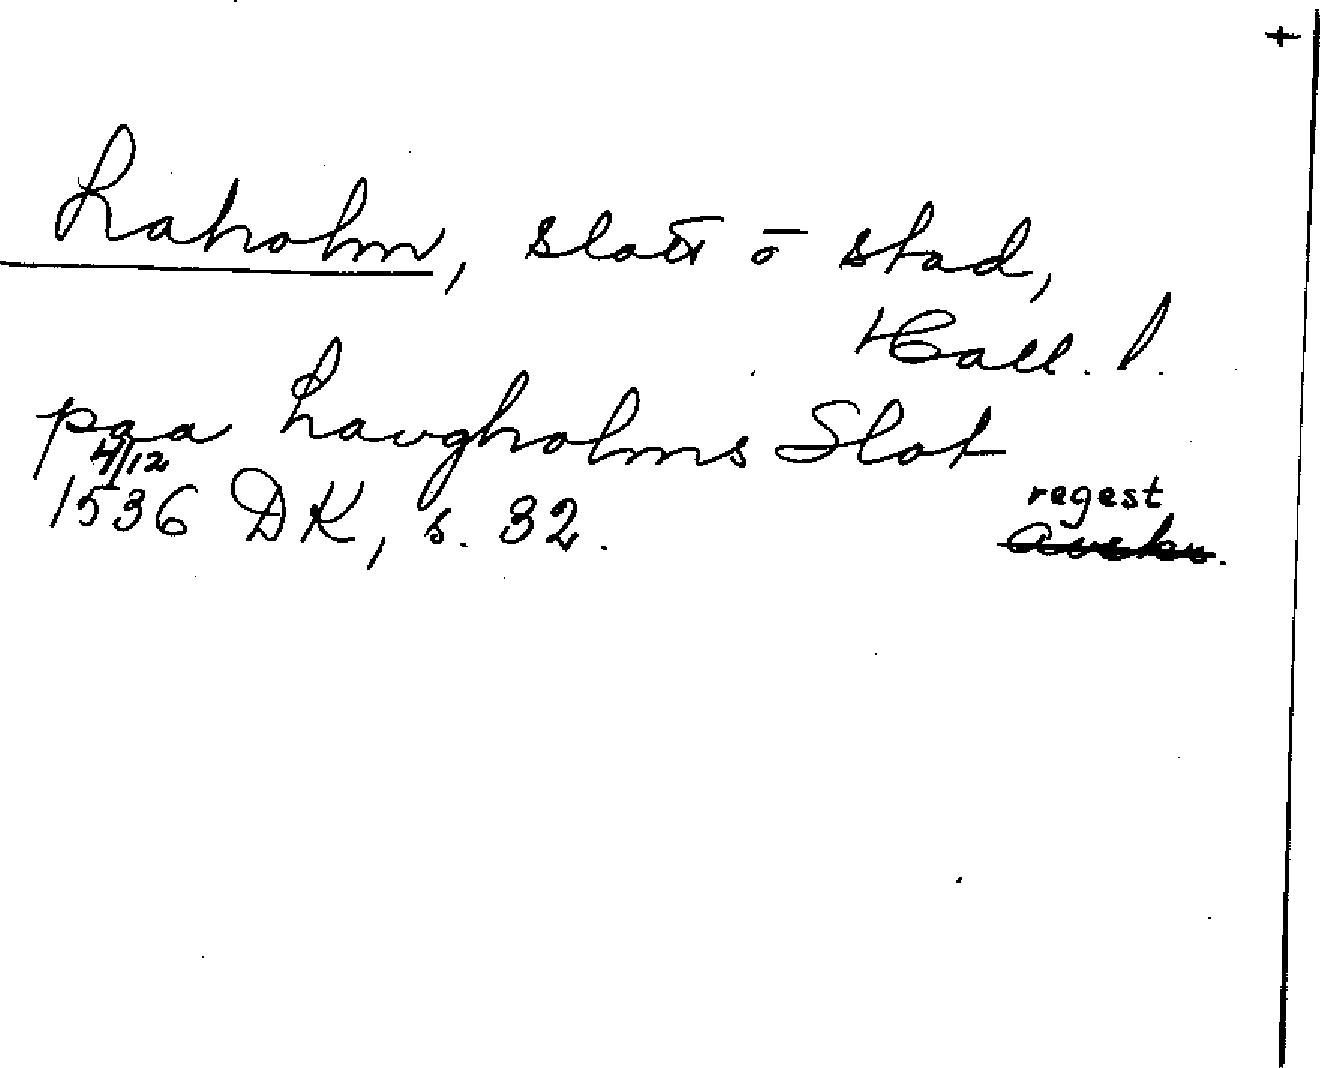 +
Laholm, slott o stad,
Hall. l.
paa Laugholms Slot
4/12
1536 DK, s. 32.
regest